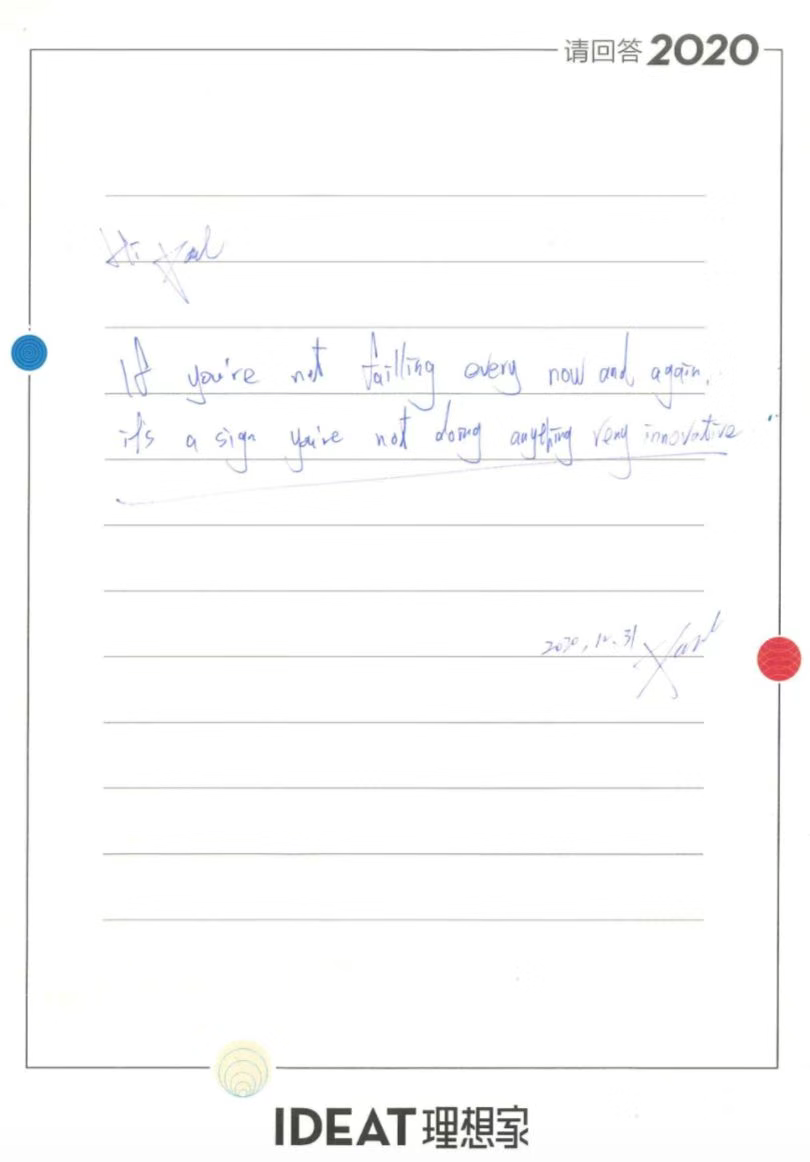 请回答2020
Hi
If you're not failling every now and again,
it's a sign you're not doing anything very innovative
31
IDEAT理想家